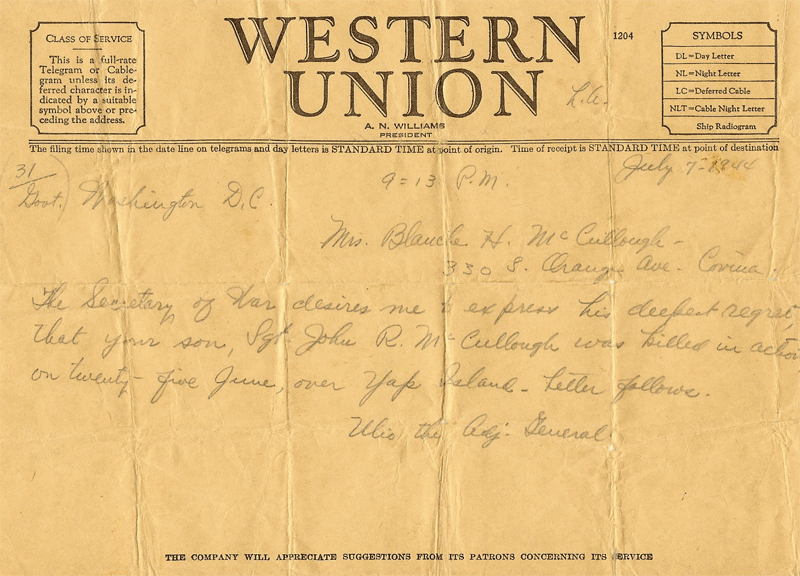 CLASS OF SERVICE
This is a full-rate
Telegram or Cable-
gram unless its de-
ferred character is in-
dicated by a suitable
symbol above or pre-
ceding the address.
WESTERN
UNION
A. N. WILLIAMS
PRESIDENT
1204
L.A.
SYMBOLS
DL=Day Letter
NL=Night Letter
LC=Deferred Cable
NLT=Cable Night Letter
Ship Radiogram
The filing time shown in the date line on telegrams and day letters is STANDARD TIME at point of origin. Time of receipt is STANDARD TIME at point of destination
31
Govt. Washington D.C. 9=13 P.M. July 7-1944
Mrs. Blanche H. McCullough-
330 S. Orange Ave- Covina.
The Secretary of War desires me to express his deepest regret,
that your son, Sgt. John R. McCullough was killed in action
on twenty-five June, over Yap Island- Letter follows.
Ulio the Adj. General
THE COMPANY WILL APPRECIATE SUGGESTIONS FROM ITS PATRONS CONCERNING ITS SERVICE